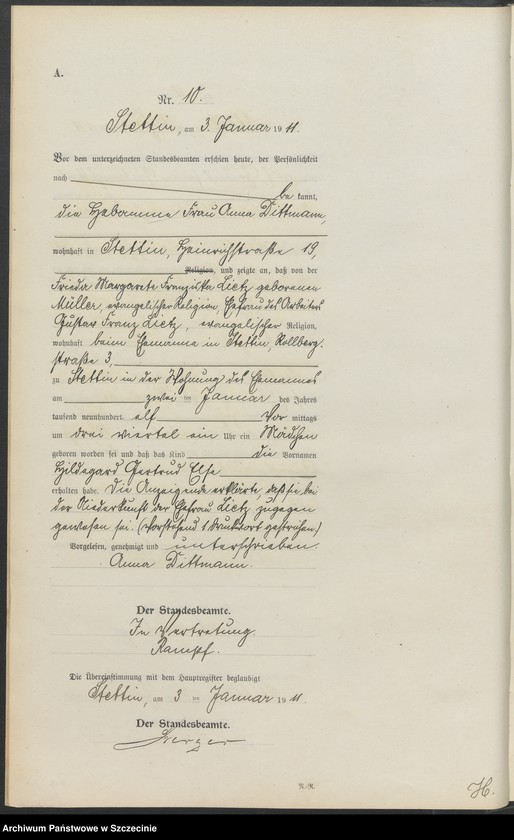 A.
Nr. 10.
Stettin, am 3. Januar 1911.
Vor dem unterzeichneten Standesbeamten erschien heute, der Persönlichkeit
nach
be kannt,
die Hebamme Frau Anna Dittmann,
wohnhaft in Stettin, Heinrichstraße 19,
Religion, und zeigte an, daß von der
Frieda Margarete Franziska Lietz geborenen
Müller, evangelischer Religion, Ehefrau des Arbeiters
Gustav Franz Lietz, evangelischer Religion,
wohnhaft beim Ehemanne in Stettin, Rollberg-
straße 3,
zu Stettin in der Wohnung des Ehemannes
am zwei ten Januar des Jahres
tausend neunhundert elf Vor mittags
um drei viertel ein Uhr ein Mädchen
geboren worden sei und daß das Kind die Vornamen
Hildegard Gertrud Else
erhalten habe. Die Anzeigende erklärte, daß sie bei
der Niederkunft der Ehefrau Lietz zugegen
gewesen sei. (Vorstehend 1 Druckwort gestrichen.)
Vorgelesen, genehmigt und unterschrieben.
Anna Dittmann.
Der Standesbeamte.
In Vertretung.
Rampf.
Die Übereinstimmung mit dem Hauptregister beglaubigt
Stettin, am 3 ten Januar 1911.
Der Standesbeamte.
N./R.
H.
Archiwum Państwowe w Szczecinie